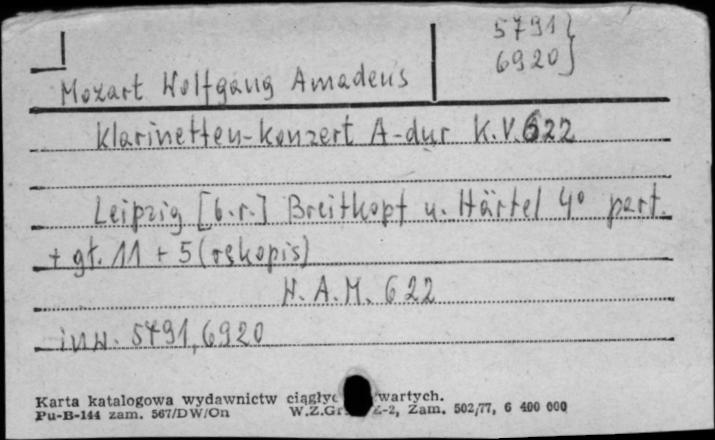 5791}
6920}
Mozart Wolfgang Amadeus
Klarinetten-konzert A-dur K.V. 622
Leipzig [b.r.] Breitkopf u. Härtel 4° part.
+ gł. 11 + 5 (rękopis)
W. A. M. 622
inw. 5791, 6920
Karta katalogowa wydawnictw wartych.
Pu-B-144 zam. 567/DW/On Zam. 502/77, 6 400 000